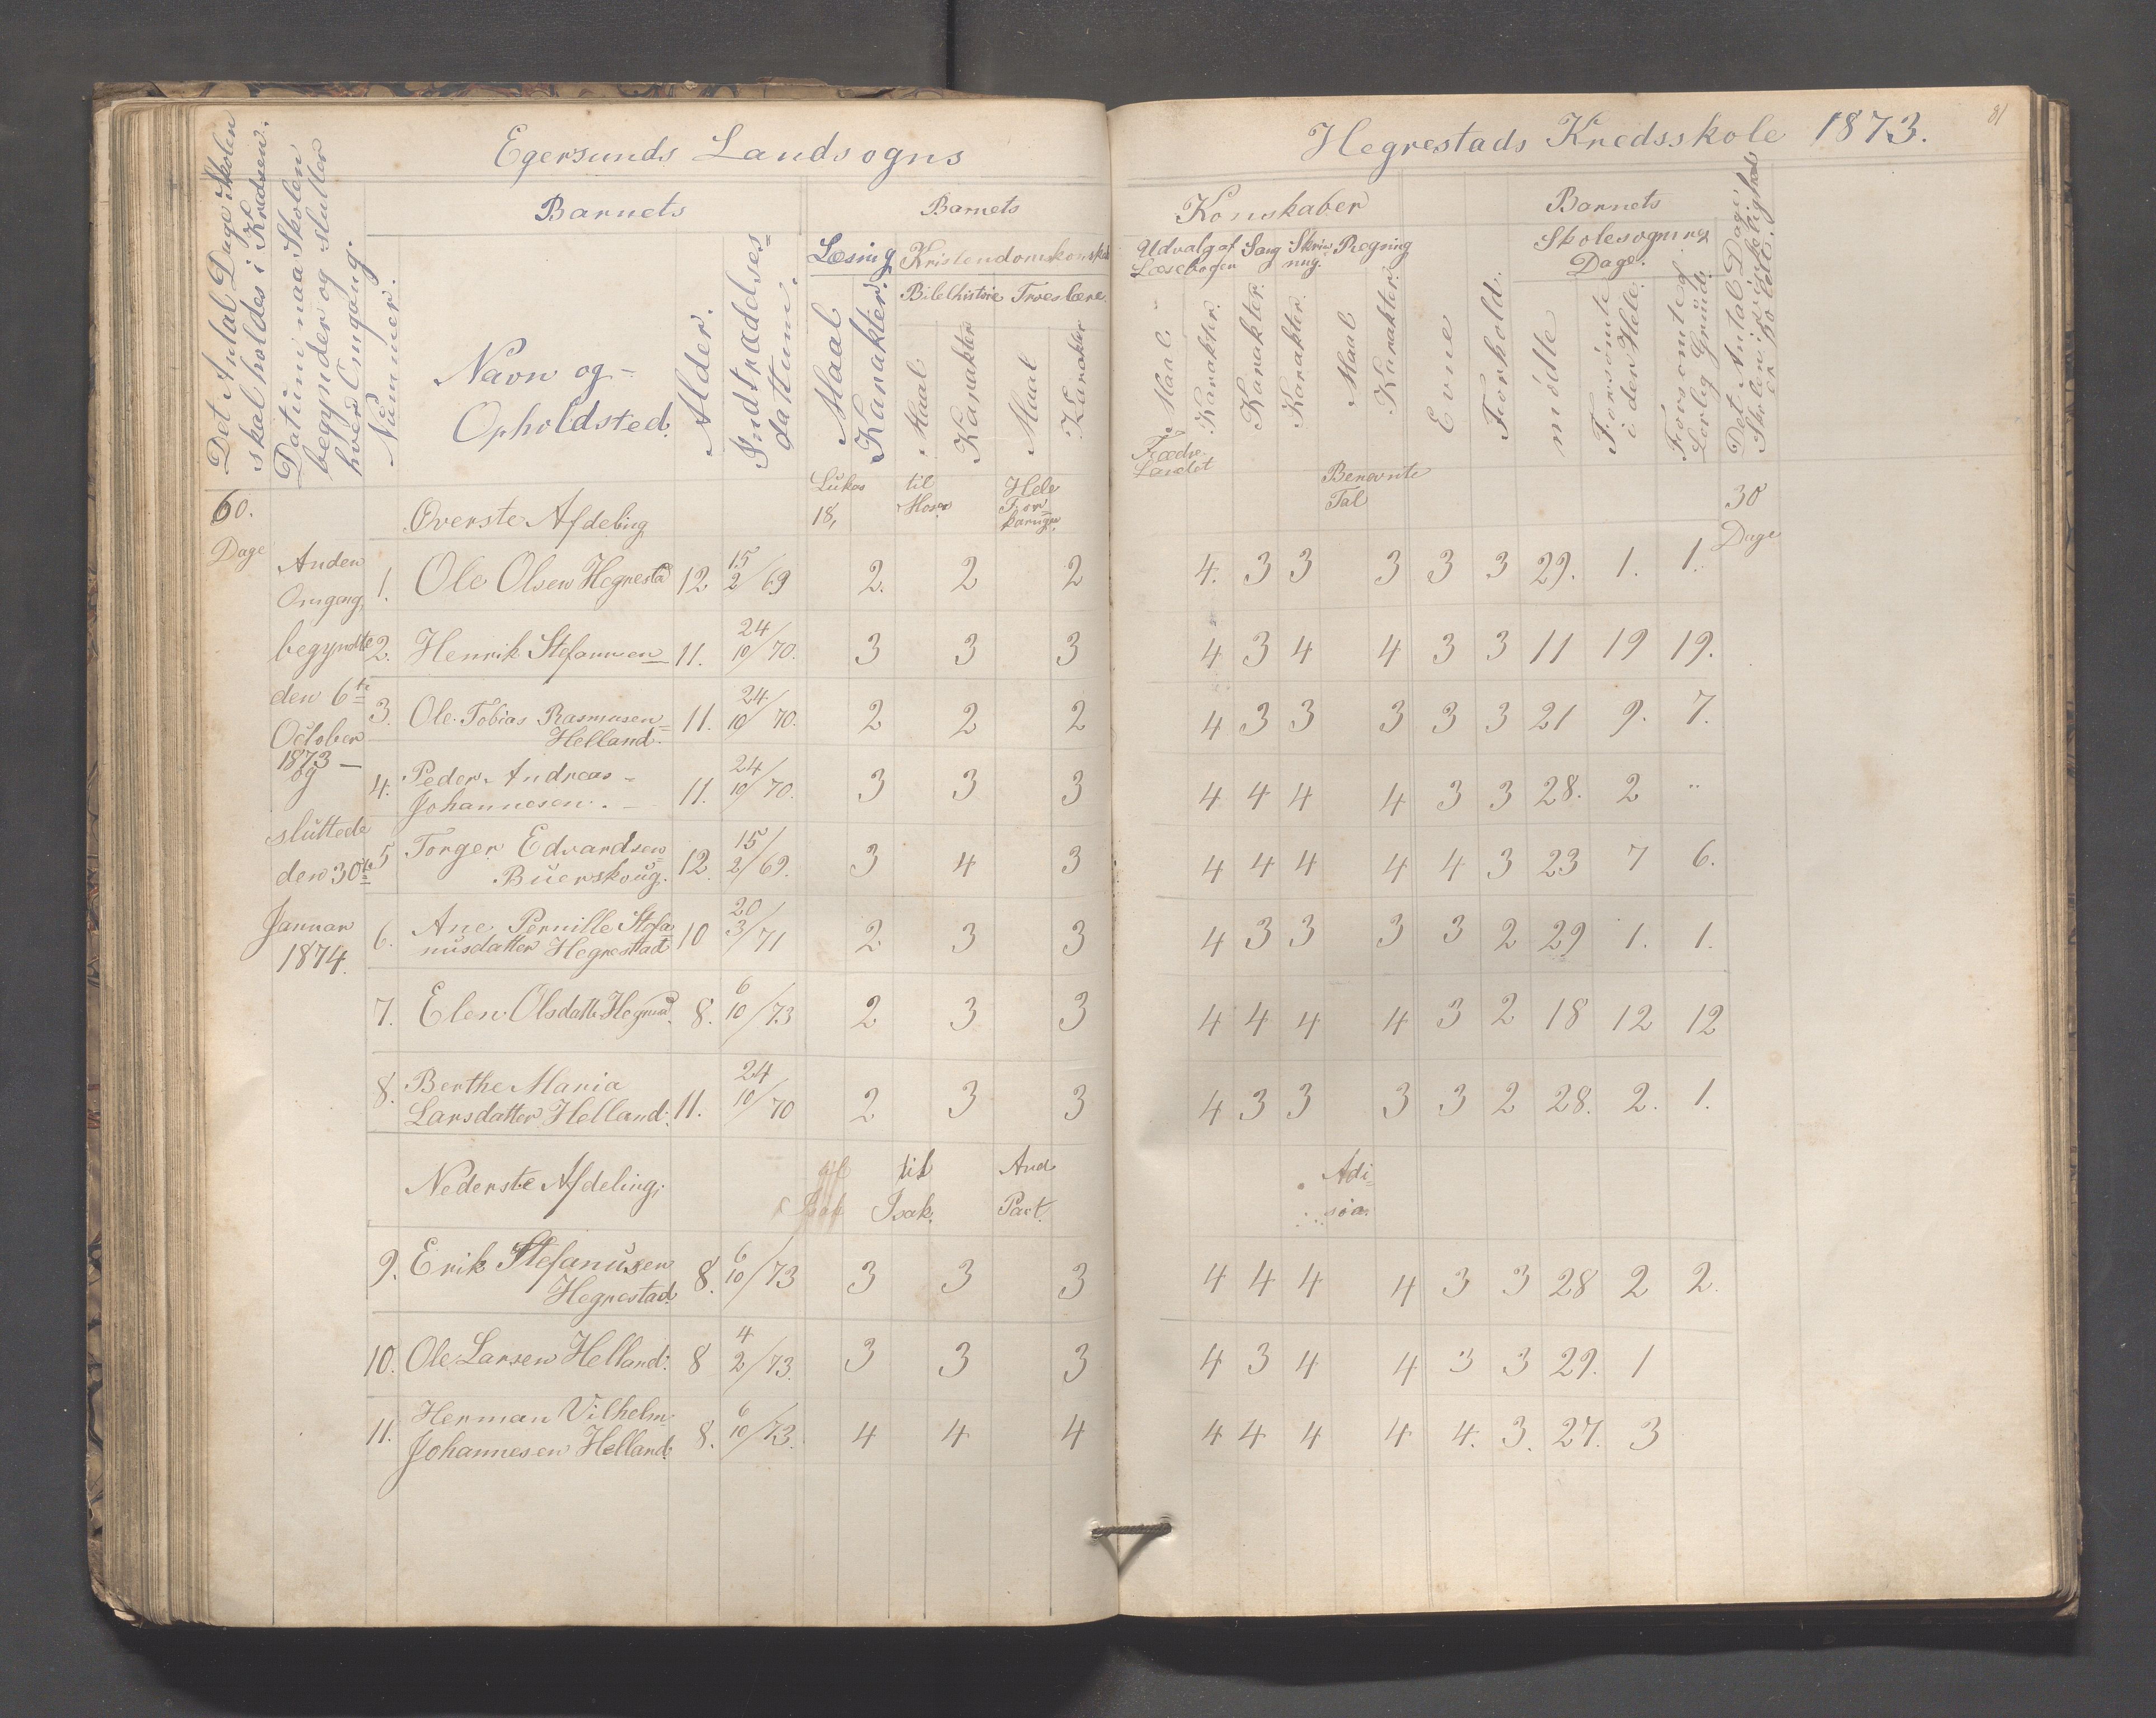 Egersunds Landsogns
Hegrestads Kredsskole 1873.
81
Det Antal Dage Skolen
skal holdes i Kredsen.
Datum naar Skolen
begynder og slutter
hver Omgang.
Barnets
Nummer.
Navn og
Opholdsted.
Alder.
Indtrædelses=
dattum.
Barnets
Læsing
Kristendomskonskab
Maal
Karakter.
Bibelhistorie Troeslære
Maal
Karakter
Maal
Karakter
Konskaber
Udvalg af Læsebogen
Sang
Skrivning.
Regning
Maal.
Karakter.
Karakter.
Karakter.
Maal
Karakter.
Evne
Forhold.
Barnets
Skolesøgning
Dage.
mødte
Forsømte
i det Hele.
Forsømte af
Lovlig Grund.
Det Antal Dage
Skolen i Virkeligheden
er holdt.
60.
Dage
Øverste Afdeling
Lukas 18,
til Moses
Hele Forklaringen
Fædrelandet
Benevnte Tal
30
Dage
Anden
Omgang
begyndte
den 6te
October
1873 —
og
sluttede
den 30te
Januar
1874.
1. Ole Olsen Hegrestad 12 15/2/69 2. 2 2 4. 3 3 3 3 3 29. 1. 1.
2. Henrik Stefanusen 11. 24/10/70. 3 3 3 4 3 4 4 3 3 11 19 19.
3. Ole Tobias Rasmusen=
Helland. 11. 24/10/70. 2 2 2 4 3 3 3 3 3 21 9. 7.
4. Peder Andreas -
Johannesen. - 11. 24/10/70. 3 3 3 4 4 4 4 3 3 28. 2 "
5 Torger Edvardsen=
Buerskoug. 12. 15/2/69. 3 4 3 4 4 4 4 4 3 23 7 6.
6. Ane Pernille Stefa=
nusdatter Hegrestad 10 20/3/71 2. 3 3 4 3 3 3 3 2 29 1. 1.
7. Elen Olsdatter Hegrestad. 8. 6/10/73 2 3 3 4 4 4 4 3 2 18 12 12
8. Berthe Maria
Larsdatter Helland. 11. 24/10/70 2 3 3 4 3 3 3 3 2 28. 2. 1.
Nederste Afdeling;
af Isak
til Isak.
And Part.
Adision
9. Erik Stefanusen
Hegrestad. 8. 6/10/73 3 3 3 4 4 4 4 3 3 28 2 2.
10. Ole Larsen Helland. 8 4/2/73. 3 3 3 4 3 4 4 3 3 29. 1
11. Herman Vilhelm
Johannesen Helland. 8. 6/10/73. 4 4 4 4 4 4 4 4. 3. 27. 3